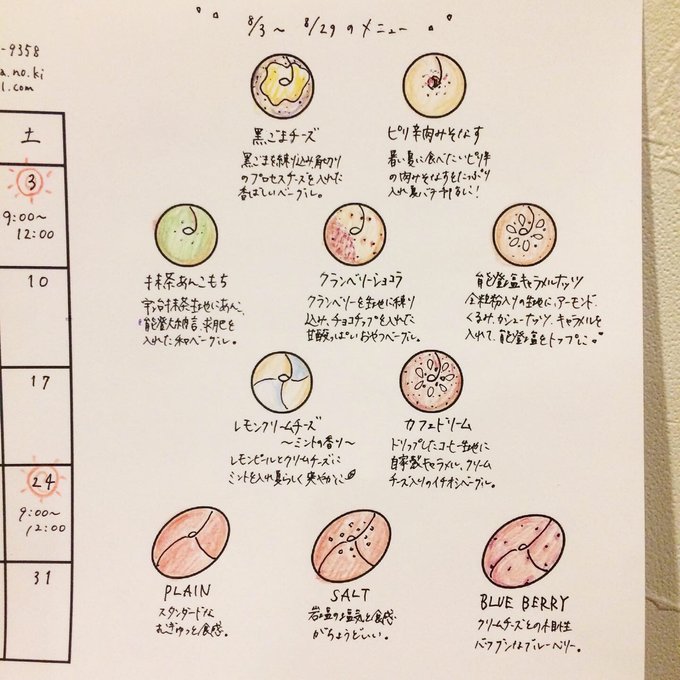 8/3〜 8/29のメニュー
-9358
a.no.ki
l.com
土
3
9:00〜
12:00
10
17
24
9:00〜
12:00
31
黒ごまチーズ
黒ごまを練り込み角切り
のプロセスチーズを入れた
香ばしいベーグル。
ピリ辛肉みそなす
暑い夏に食べたいピリ辛
の肉みそなすをたっぷり
入れ夏バテ知らずに!
抹茶あんこもち
宇治抹茶生地にあん、
能登大納言、求肥を
入れた和ベーグル。
クランベリーショコラ
クランベリーを生地に練り
込み、チョコチップを入れた
甘酸っぱいおやつベーグル。
能登塩キャラメルナッツ
全粒粉入りの生地に、アーモンド
くるみ、カシューナッツ、キャラメルを
入れて、能登塩をトップに。
レモンクリームチーズ
〜ミントの香り〜
レモンピールとクリームチーズに
ミントを入れ夏らしく爽やかに
カフェドリーム
ドリップしたコーヒー生地に
自家製キャラメル、クリーム
チーズ入りのイチオシベーグル。
PLAIN
スタンダードな
むぎゅっと食感。
SALT
岩塩の塩気と食感
がちょうどいい。
BLUE BERRY
クリームチーズとの相性
バツグンなブルーベリー。